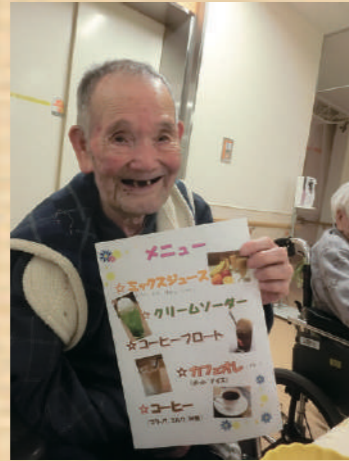 メニュー
☆ミックスジュース
☆クリームソーダー
☆コーヒーフロート
☆カフェオレ
☆コーヒー